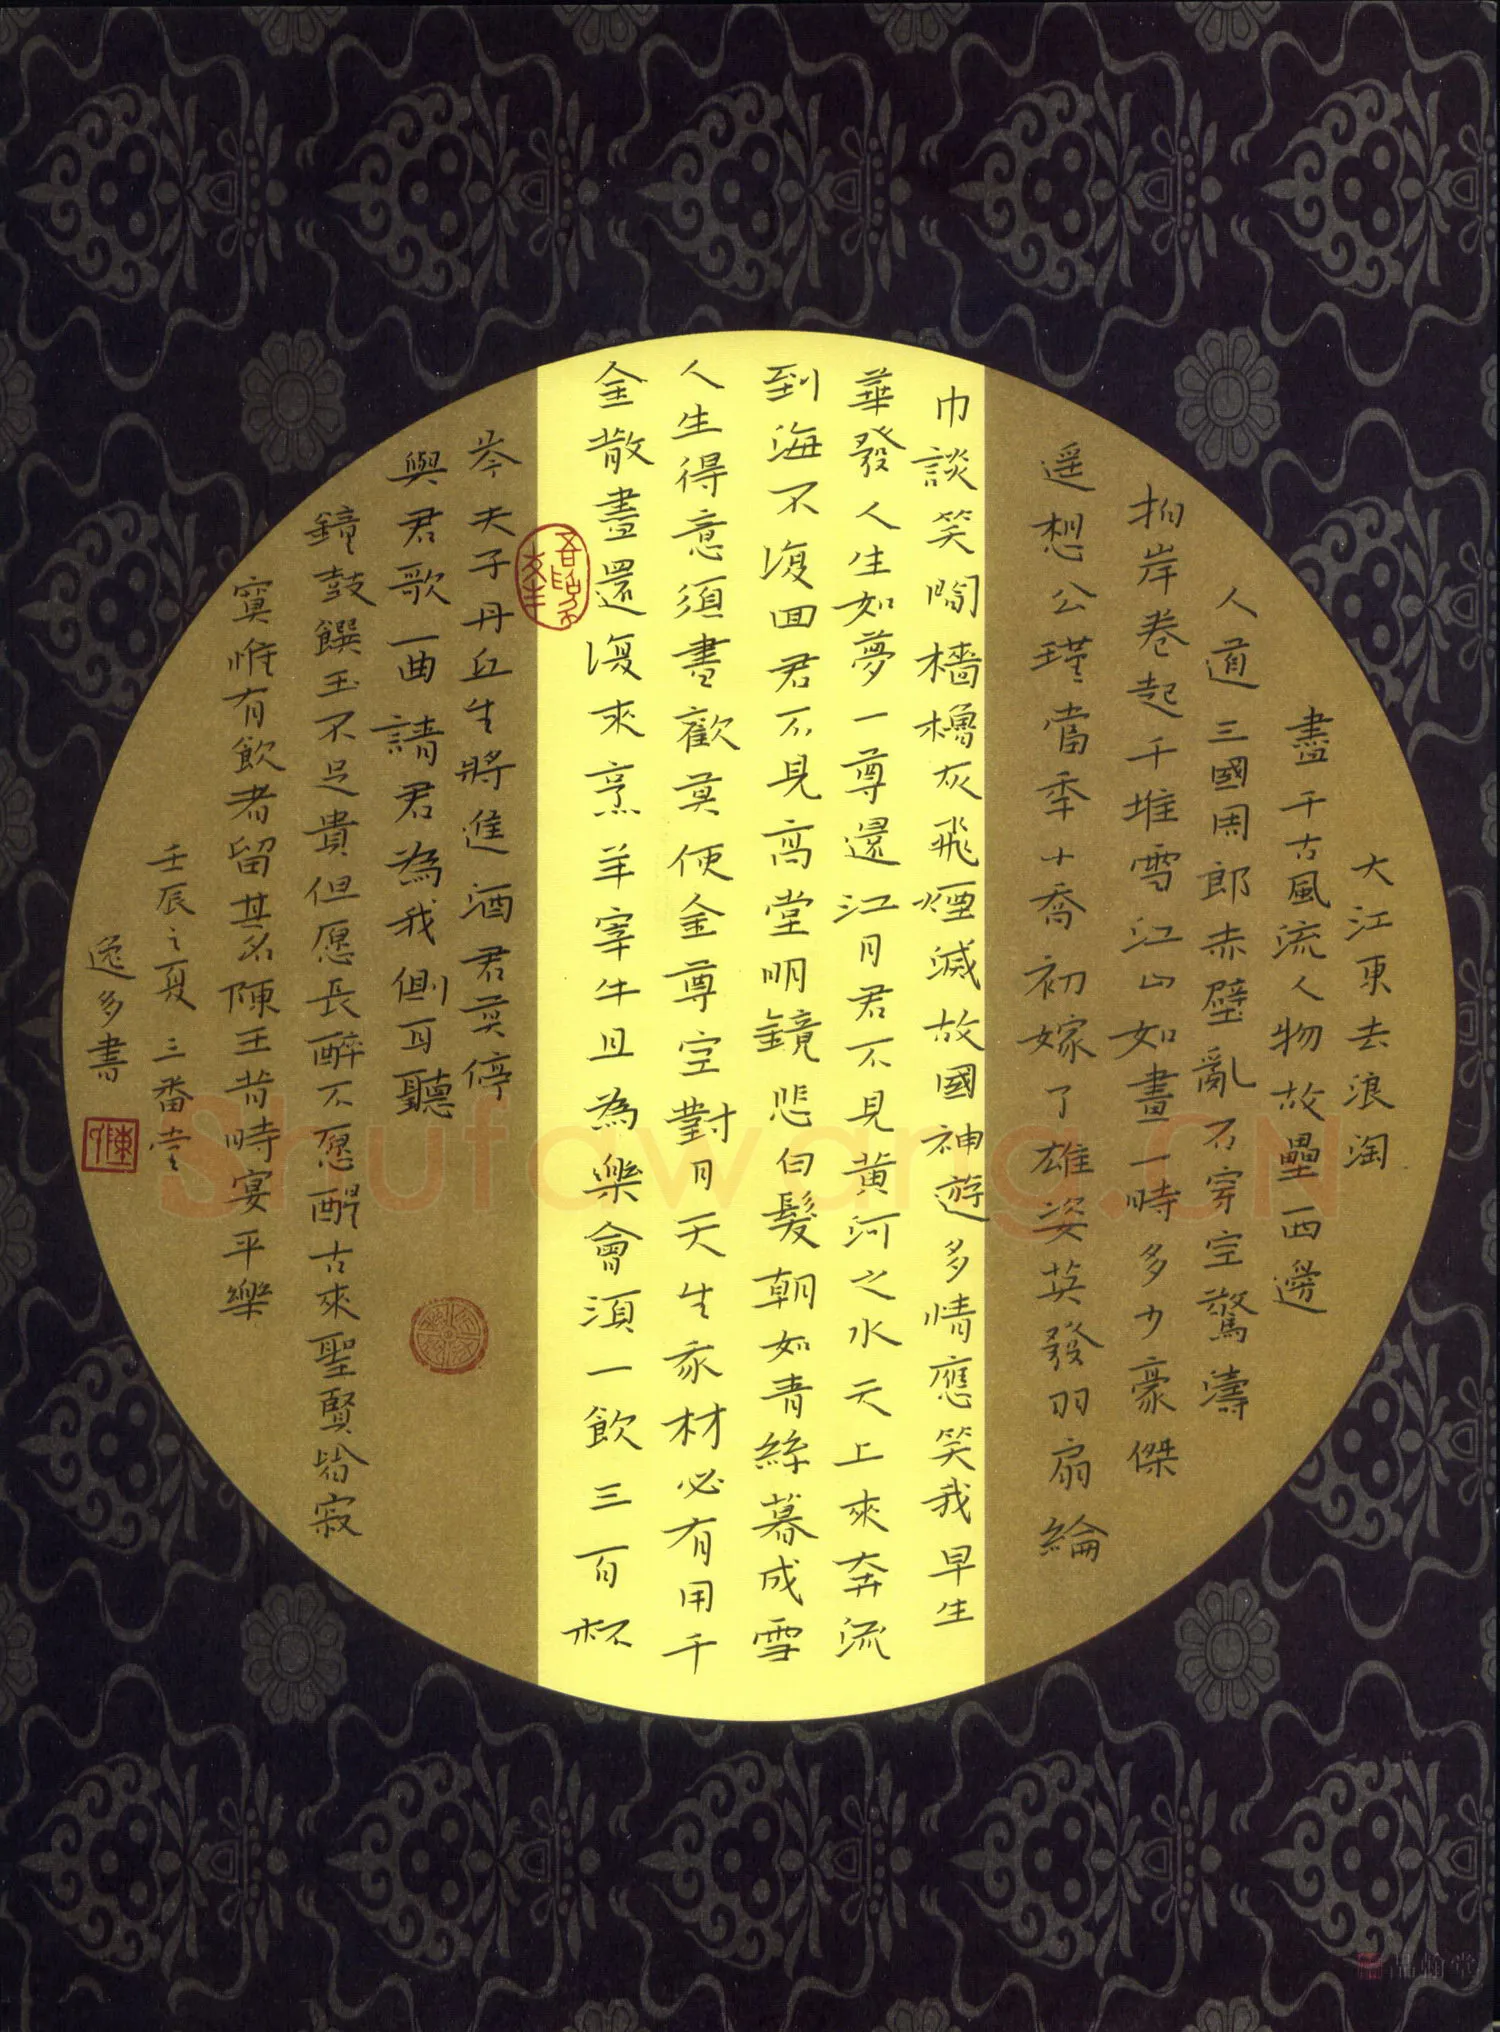 大江東去浪淘
盡千古風流人物故壘西邊
人道三國周郎赤壁亂石穿空驚濤
拍岸卷起千堆雪江山如畫一時多少豪傑
遥想公瑾當季小喬初嫁了雄姿英發羽扇綸
巾談笑間檣櫓灰飛煙滅故國神遊多情應笑我早生
華發人生如夢一尊還江月君不見黄河之水天上來奔流
到海不復回君不見高堂明鏡悲白髮朝如青絲暮成雪
人生得意須盡歡莫使金尊空對月天生我材必有用千
金散盡還復來烹羊宰牛且為樂會須一飲三百杯
岑夫子丹丘生將進酒君莫停
與君歌一曲請君為我側耳聽
鐘鼓饌玉不足貴但愿長醉不愿醒古來聖賢皆寂
寞惟有飲者留其名陳王昔時宴平樂
壬辰之夏三番堂
逸多書
陳
Shufawang.CN
品翰堂